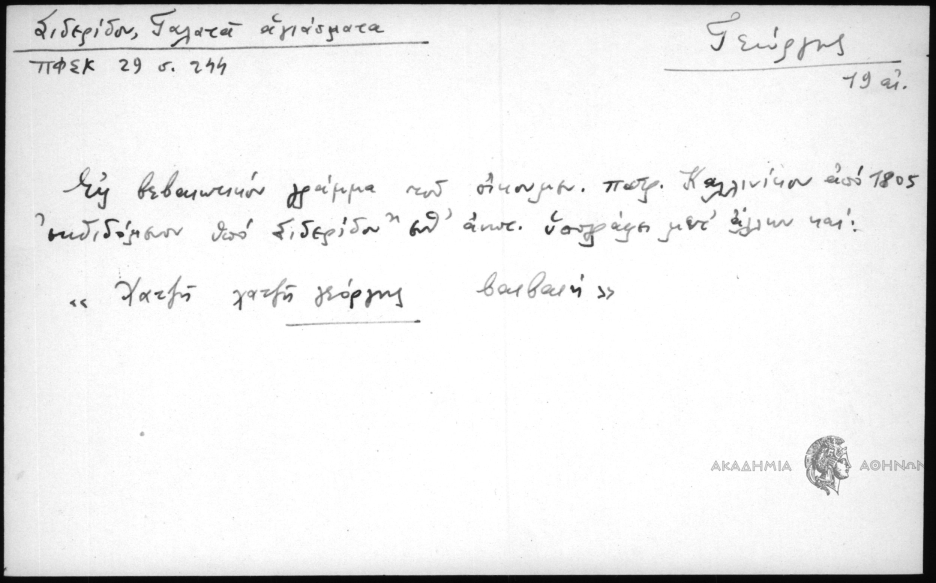 Σιδερίδου, Γαλατᾶ ἁγιάσματα
ΠΦΣΚ 29 σ. 244
Γεώργης
19 αἰ.
Εἰς βεβαιωτικόν γράμμα τοῦ οἰκουμεν. πατρ. Καλλινίκου ἀπό 1805
ἐκδιδόμενον ὑπό Σιδερίδου ὑπογράφει μετ' ἄλλων καί:
« Χατζῆ χατζῆ γεόργης βαιβαιή »
ΑΚΑΔΗΜΙΑ ΑΘΗΝΩΝ